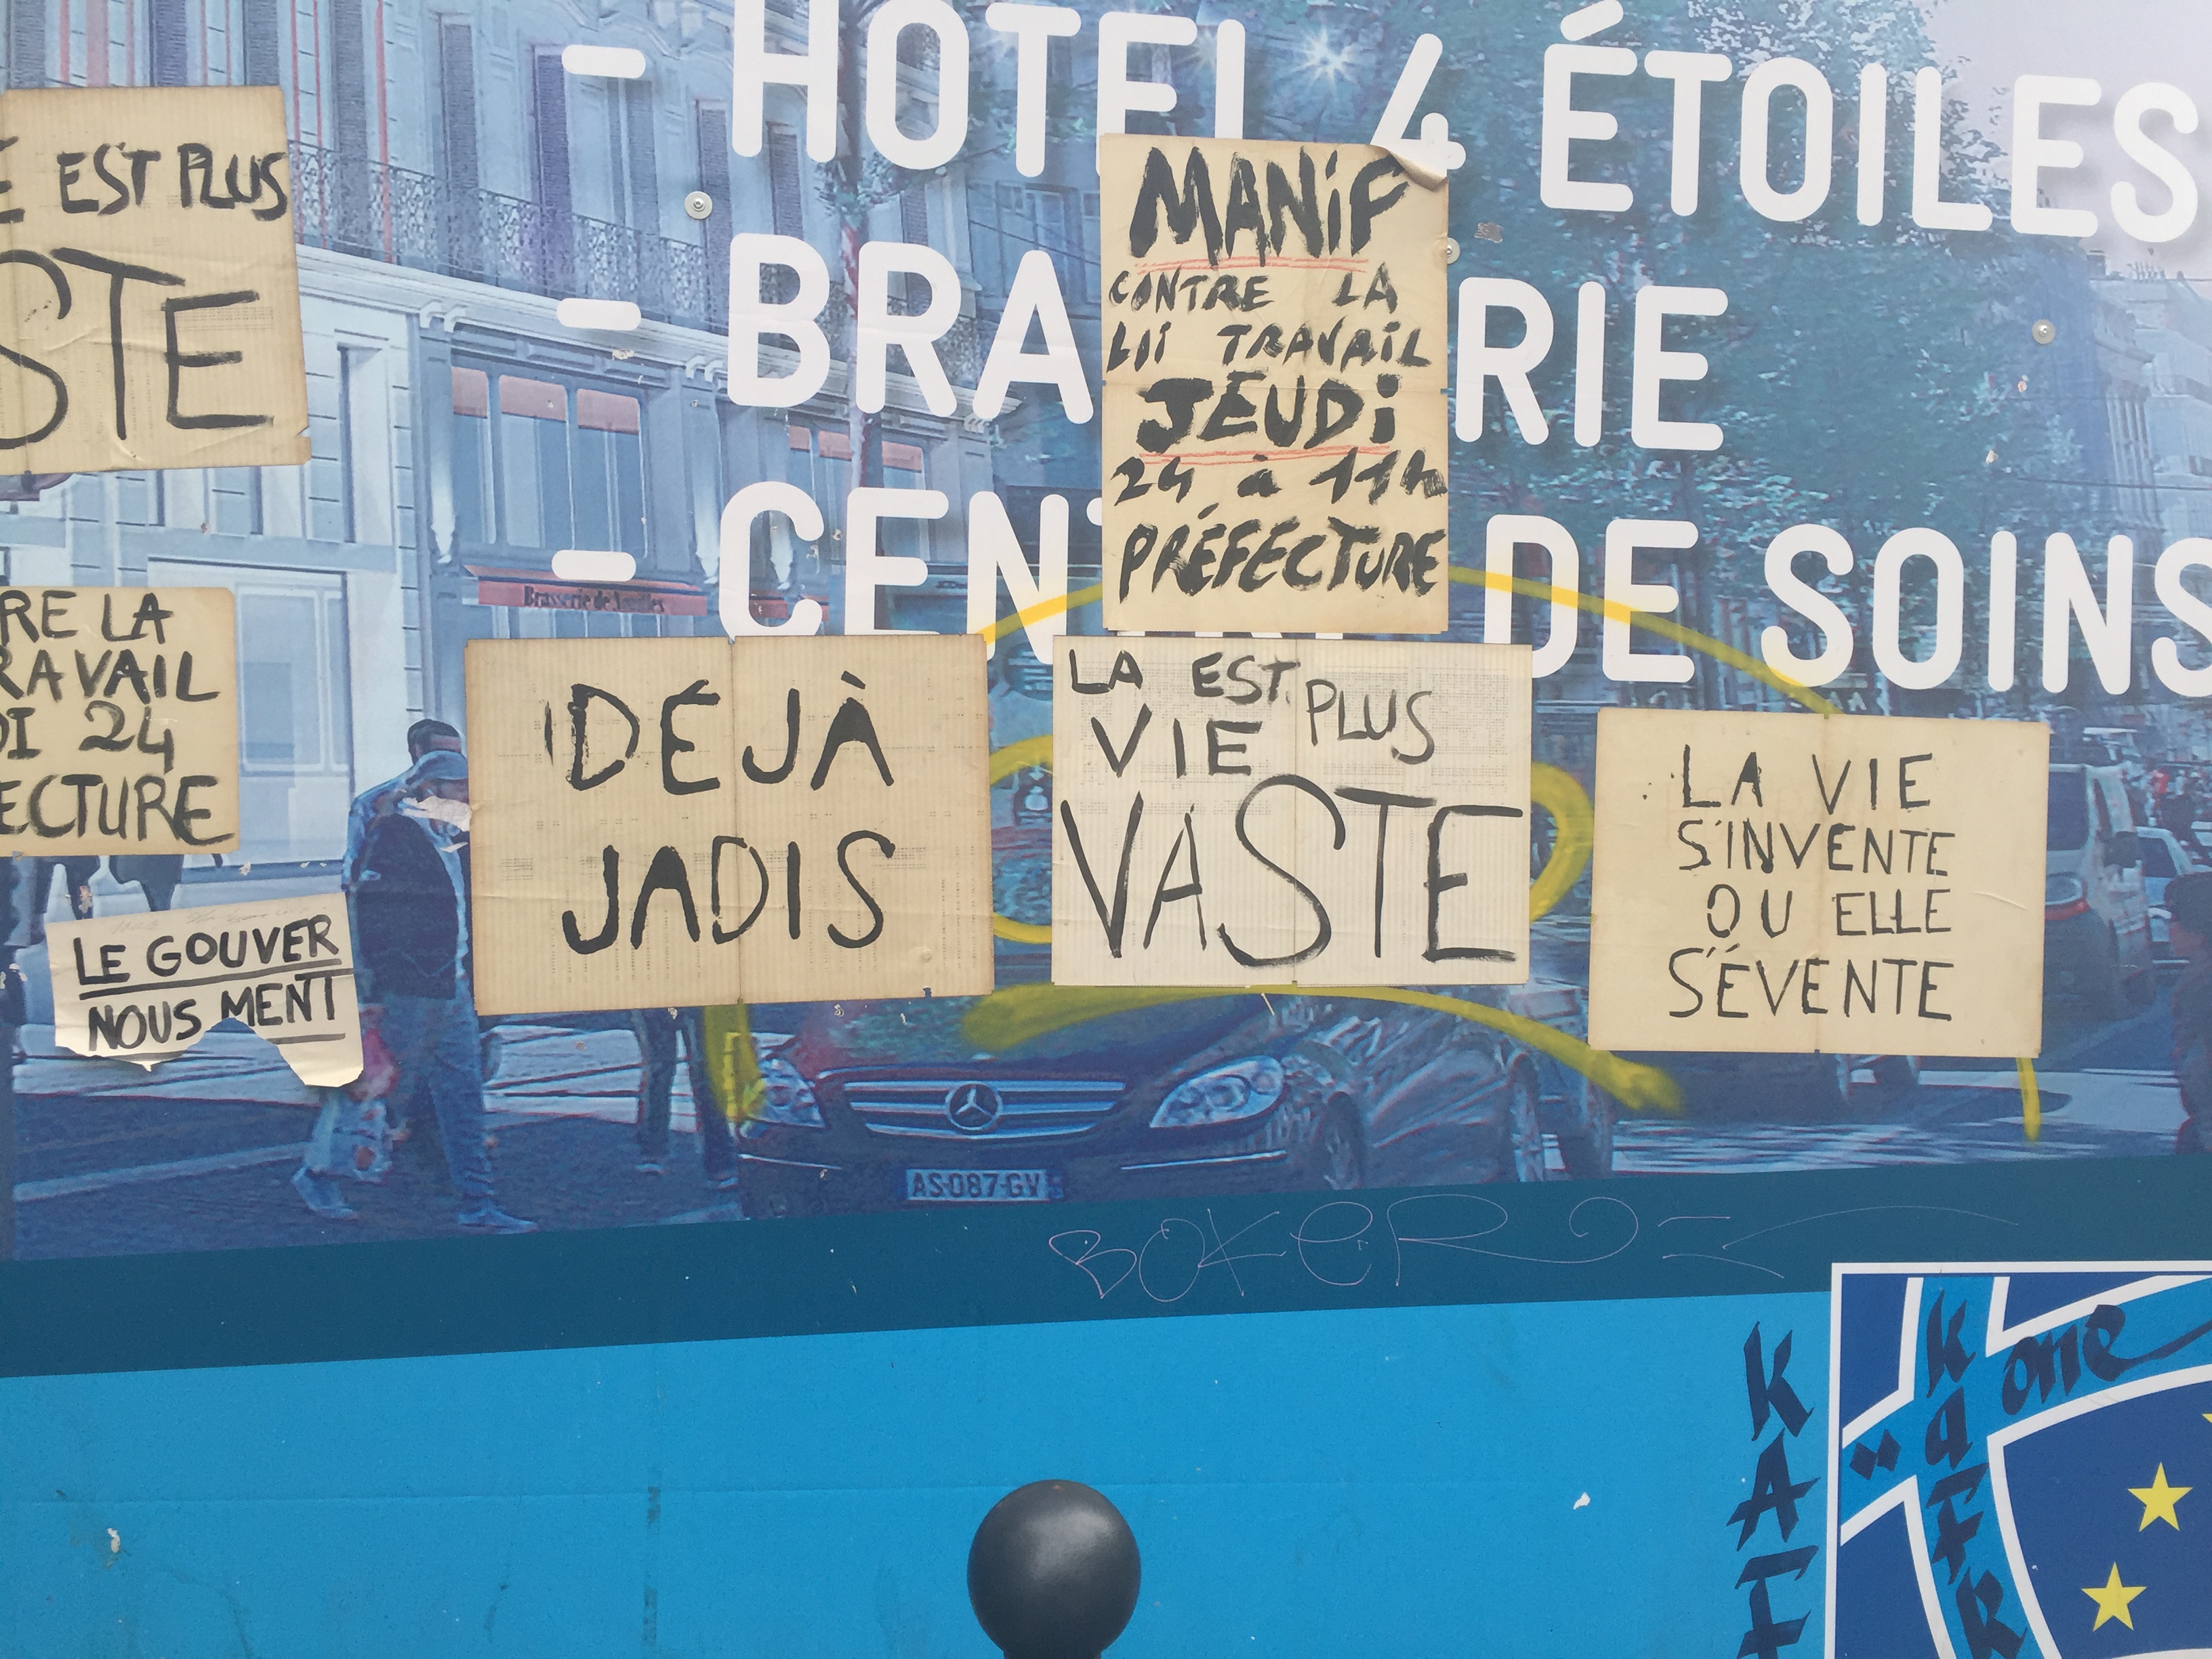 - HOTEL 4 ÉTOILES
- BRA RIE
- CENTRE DE SOINS
E EST PLUS
STE
MANIF
CONTRE LA
LOI TRAVAIL
JEUDI
24 à 11h
PRÉFECTURE
RE LA
RAVAIL
DI 24
ECTURE
Brasserie de
LE GOUVER
NOUS MENT
DÉJÀ
JADIS
LA EST PLUS
VIE
VASTE
LA VIE
S'INVENTE
OU ELLE
S'ÉVENTE
AS-087-GV
BOKER
KAF
KAFR
one